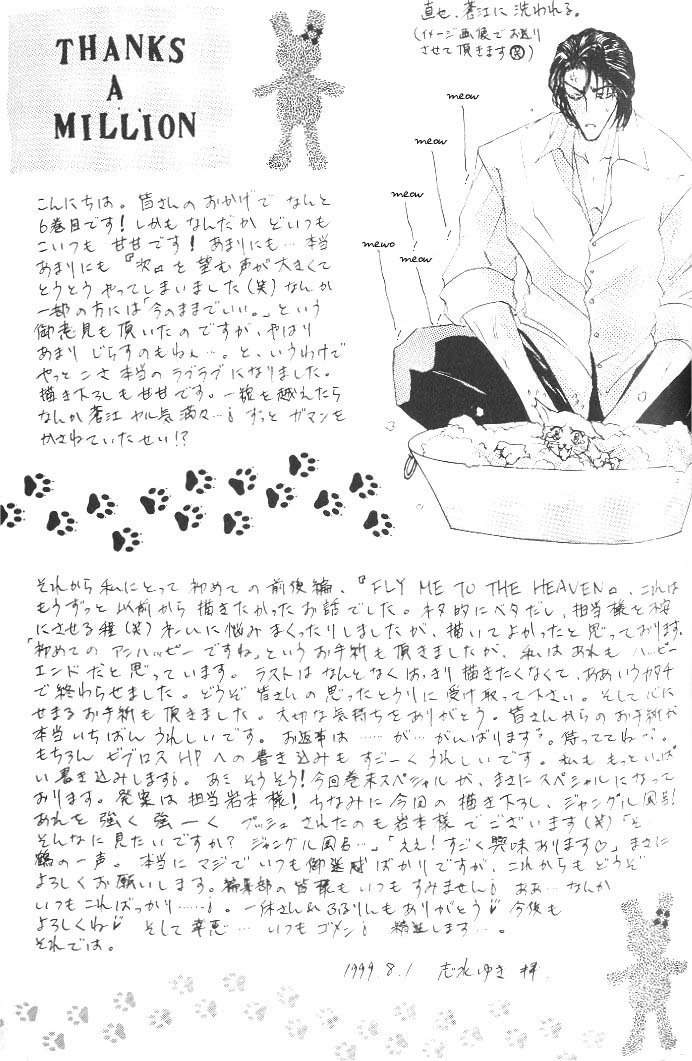 THANKS
A
MILLION
直也、蒼江に洗われる。
(イメージ画像でお送り
させて頂きます㊗)
meow
meow
meow
mewo
meow
こんにちは。皆さんのおかげで なんと
6巻目です!しかも なんだか どいつも
こいつも 甘甘です! あまりにも… 本当
あまりにも 『次』を望む声が大きくて
とうとうやってしまいました(笑)なんか
一部の方には「今のままでいい。」という
御意見も頂いたのですが、やはり
あまり じらすのもねぇ…。と、いうわけで
やっとこさ本当のラブラブになりました。
描き下ろしも甘甘です。一線を越えたら
なんか 蒼江 ヤル気満々…! ずっと ガマンを
かさねていたせい!?
それから 私にとって 初めての前後編、『FLY ME TO THE HEAVEN』。これは
もうずっと以前から描きたかったお話でした。ネタ的にベタだし、担当様を不安
にさせる程(笑)大いに悩みまくったりしましたが、描いてよかったと思っております。
「初めての アンハッピーですね」というお手紙も頂きましたが、私はあれも ハッピー
エンドだと思っています。ラストは なんとなくはっきり描きたくなくて、ああいうカタチ
で終わらせました。どうぞ皆さんの思ったとうりに受け取って下さい。そして心に
せまるお手紙も頂きました。大切な気持ちをありがとう。皆さんからのお手紙が
本当いちばん うれしいです。お返事は …… が… がんばります。待っててね…。
もちろん ビブロス HP への書き込みも すごーくうれしいです。私も もっといっぱ
い書き込みします。あ、そうそう!今回巻末スペシャルが、まさにスペシャルになって
おります。発案は担当岩本様!ちなみに今回の描き下ろし、ジャングル風呂!
あれを 強く 強ーく プッシュされたのも岩本様でございます(笑)「そ、
そんなに見たいですか? ジャングル風呂…」「ええ!すごく興味あります♡」まさに
鶴の一声。本当にマジでいつも御迷惑ばかりですが、これからもどうぞ
よろしくお願いします。編集部の皆様もいつもすみません! ああ… なんか
いつもこればっかり……!。一休さん& ふるりんもありがとう♡ 今後も
よろしくね♡ そして 幸恵… いつもゴメン! 精進します…。
それでは。
1999.8.1 志水ゆき 拝